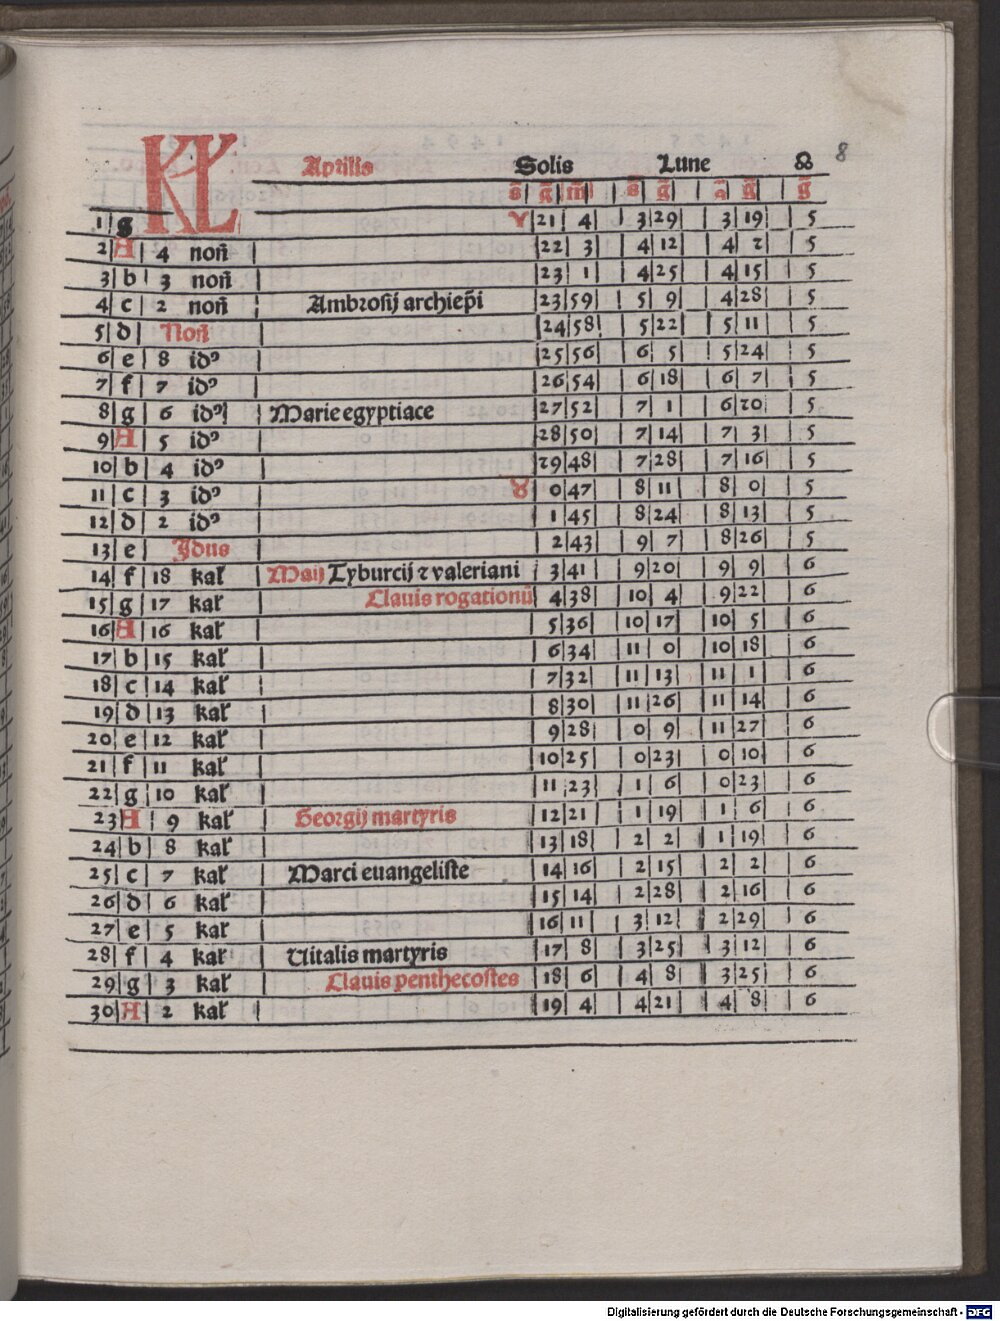 8
KL Aprilis Solis Lune ☊
s̄ ḡ m̄ s̄ ḡ ḡ ḡ
1 g ♈ 21 4 3 29 3 19 5
2 A 4 non̄ 22 3 4 12 4 2 5
3 b 3 non̄ 23 1 4 25 4 15 5
4 c 2 non̄ Ambrosij archiep̄i 23 59 5 9 4 28 5
5 d Non̄ 24 58 5 22 5 11 5
6 e 8 idꝰ 25 56 6 5 5 24 5
7 f 7 idꝰ 26 54 6 18 6 7 5
8 g 6 idꝰ Marie egyptiace 27 52 7 1 6 20 5
9 A 5 idꝰ 28 50 7 14 7 3 5
10 b 4 idꝰ 29 48 7 28 7 16 5
11 c 3 idꝰ ♉ 0 47 8 11 8 0 5
12 d 2 idꝰ 1 45 8 24 8 13 5
13 e Jdus 2 43 9 7 8 26 5
14 f 18 kal' Maij Tyburcij ⁊ valeriani 3 41 9 20 9 9 6
15 g 17 kal' Clauis rogationū 4 38 10 4 9 22 6
16 A 16 kal' 5 36 10 17 10 5 6
17 b 15 kal' 6 34 11 0 10 18 6
18 c 14 kal' 7 32 11 13 11 1 6
19 d 13 kal' 8 30 11 26 11 14 6
20 e 12 kal' 9 28 0 9 11 27 6
21 f 11 kal' 10 25 0 23 0 10 6
22 g 10 kal' 11 23 1 6 0 23 6
23 A 9 kal' Georgij martyris 12 21 1 19 1 6 6
24 b 8 kal' 13 18 2 2 1 19 6
25 c 7 kal' Marci euangeliste 14 16 2 15 2 2 6
26 d 6 kal' 15 14 2 28 2 16 6
27 e 5 kal' 16 11 3 12 2 29 6
28 f 4 kal' Uitalis martyris 17 8 3 25 3 12 6
29 g 3 kal' Clauis penthecostes 18 6 4 8 3 25 6
30 A 2 kal' 19 4 4 21 4 8 6
Digitalisierung gefördert durch die Deutsche Forschungsgemeinschaft - DFG